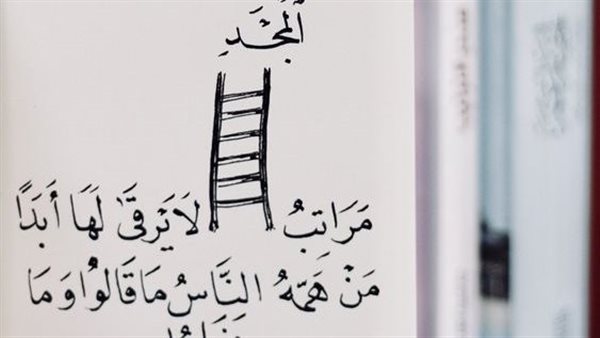 الْمَجْدِ
مَرَاتِبُ لَا يَرْقَىٰ لَهَا أَبَدًا
مَنْ هَمُّهُ النَّاسُ مَا قَالُوا وَمَا